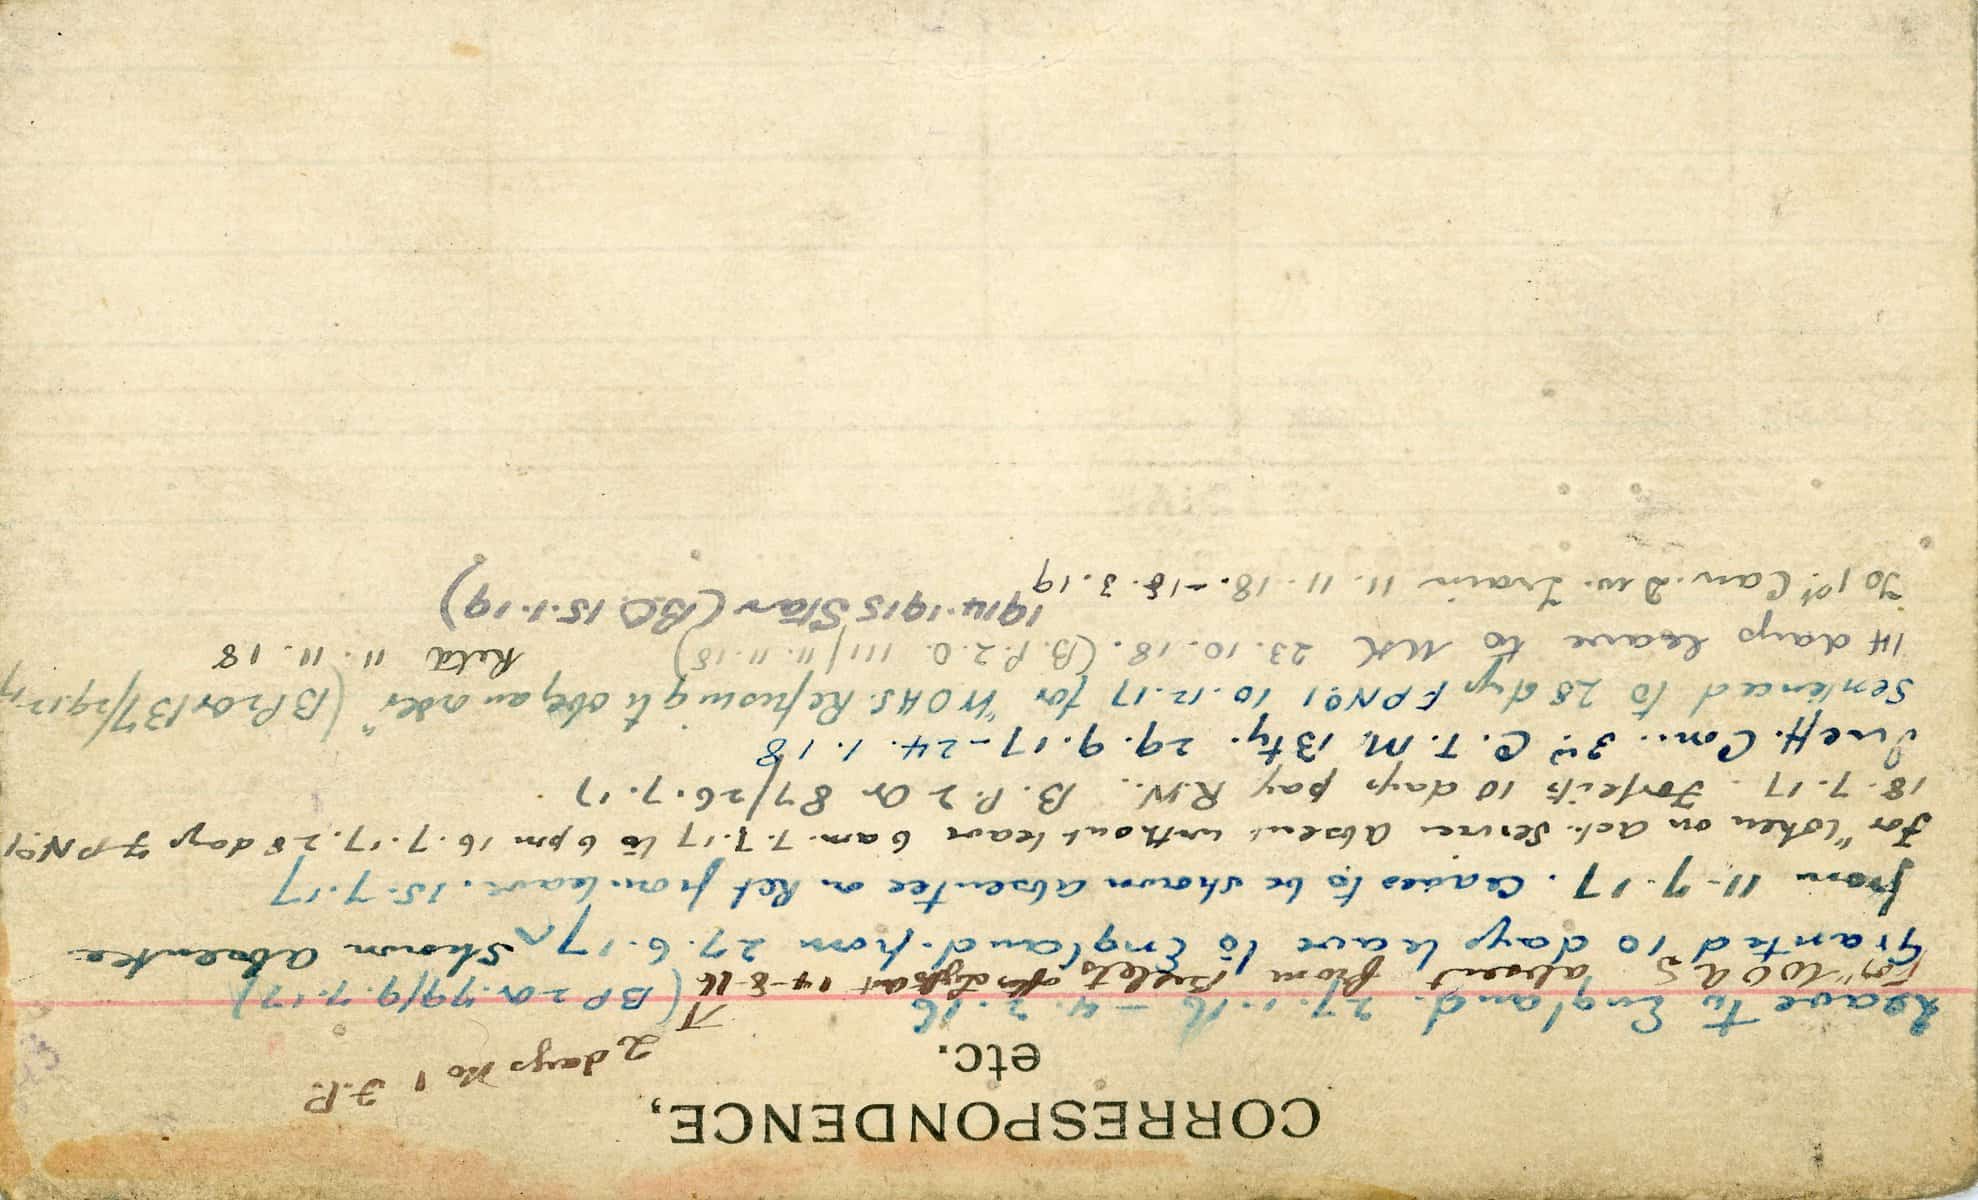 CORRESPONDENCE,
etc.
2 days No 1 F.P.
Leave to England. 27.1.16 - 4.2.16 (BP2 Or 79/9.7.17)
For "WOAS absent from Billets after Lights out 14-8-16
Granted 10 days leave to England. from 27.6.17 Shown absentee
from 11-7-17. Ceases to be shown absentee on Ret from leave. 15.7.17
For "When on Act. Service Absent without leave 6 am. 7.7.17 to 6 pm 16.7.17. 28 days F P No 1
18.7.17. Forfeits 10 days pay R.W. B.P. 2 Or 87/26.7.17
Ineff. Con. 3rd C.T.M. Bty. 29.9.17 - 24.1.18
Sentenced to 28 dys FPNo1 10.12.17 for "WOAS. Refusing to obey an order" (BP2 Or 137/29.12.17
14 days leave to UK 23.10.18. (B.P.2.O. 111/11.11.18) Retd 11.11.18
1914-1915 Star (B.O. 15.1.19)
To 1st Can. Div. Train 11.11.18.-18.3.19